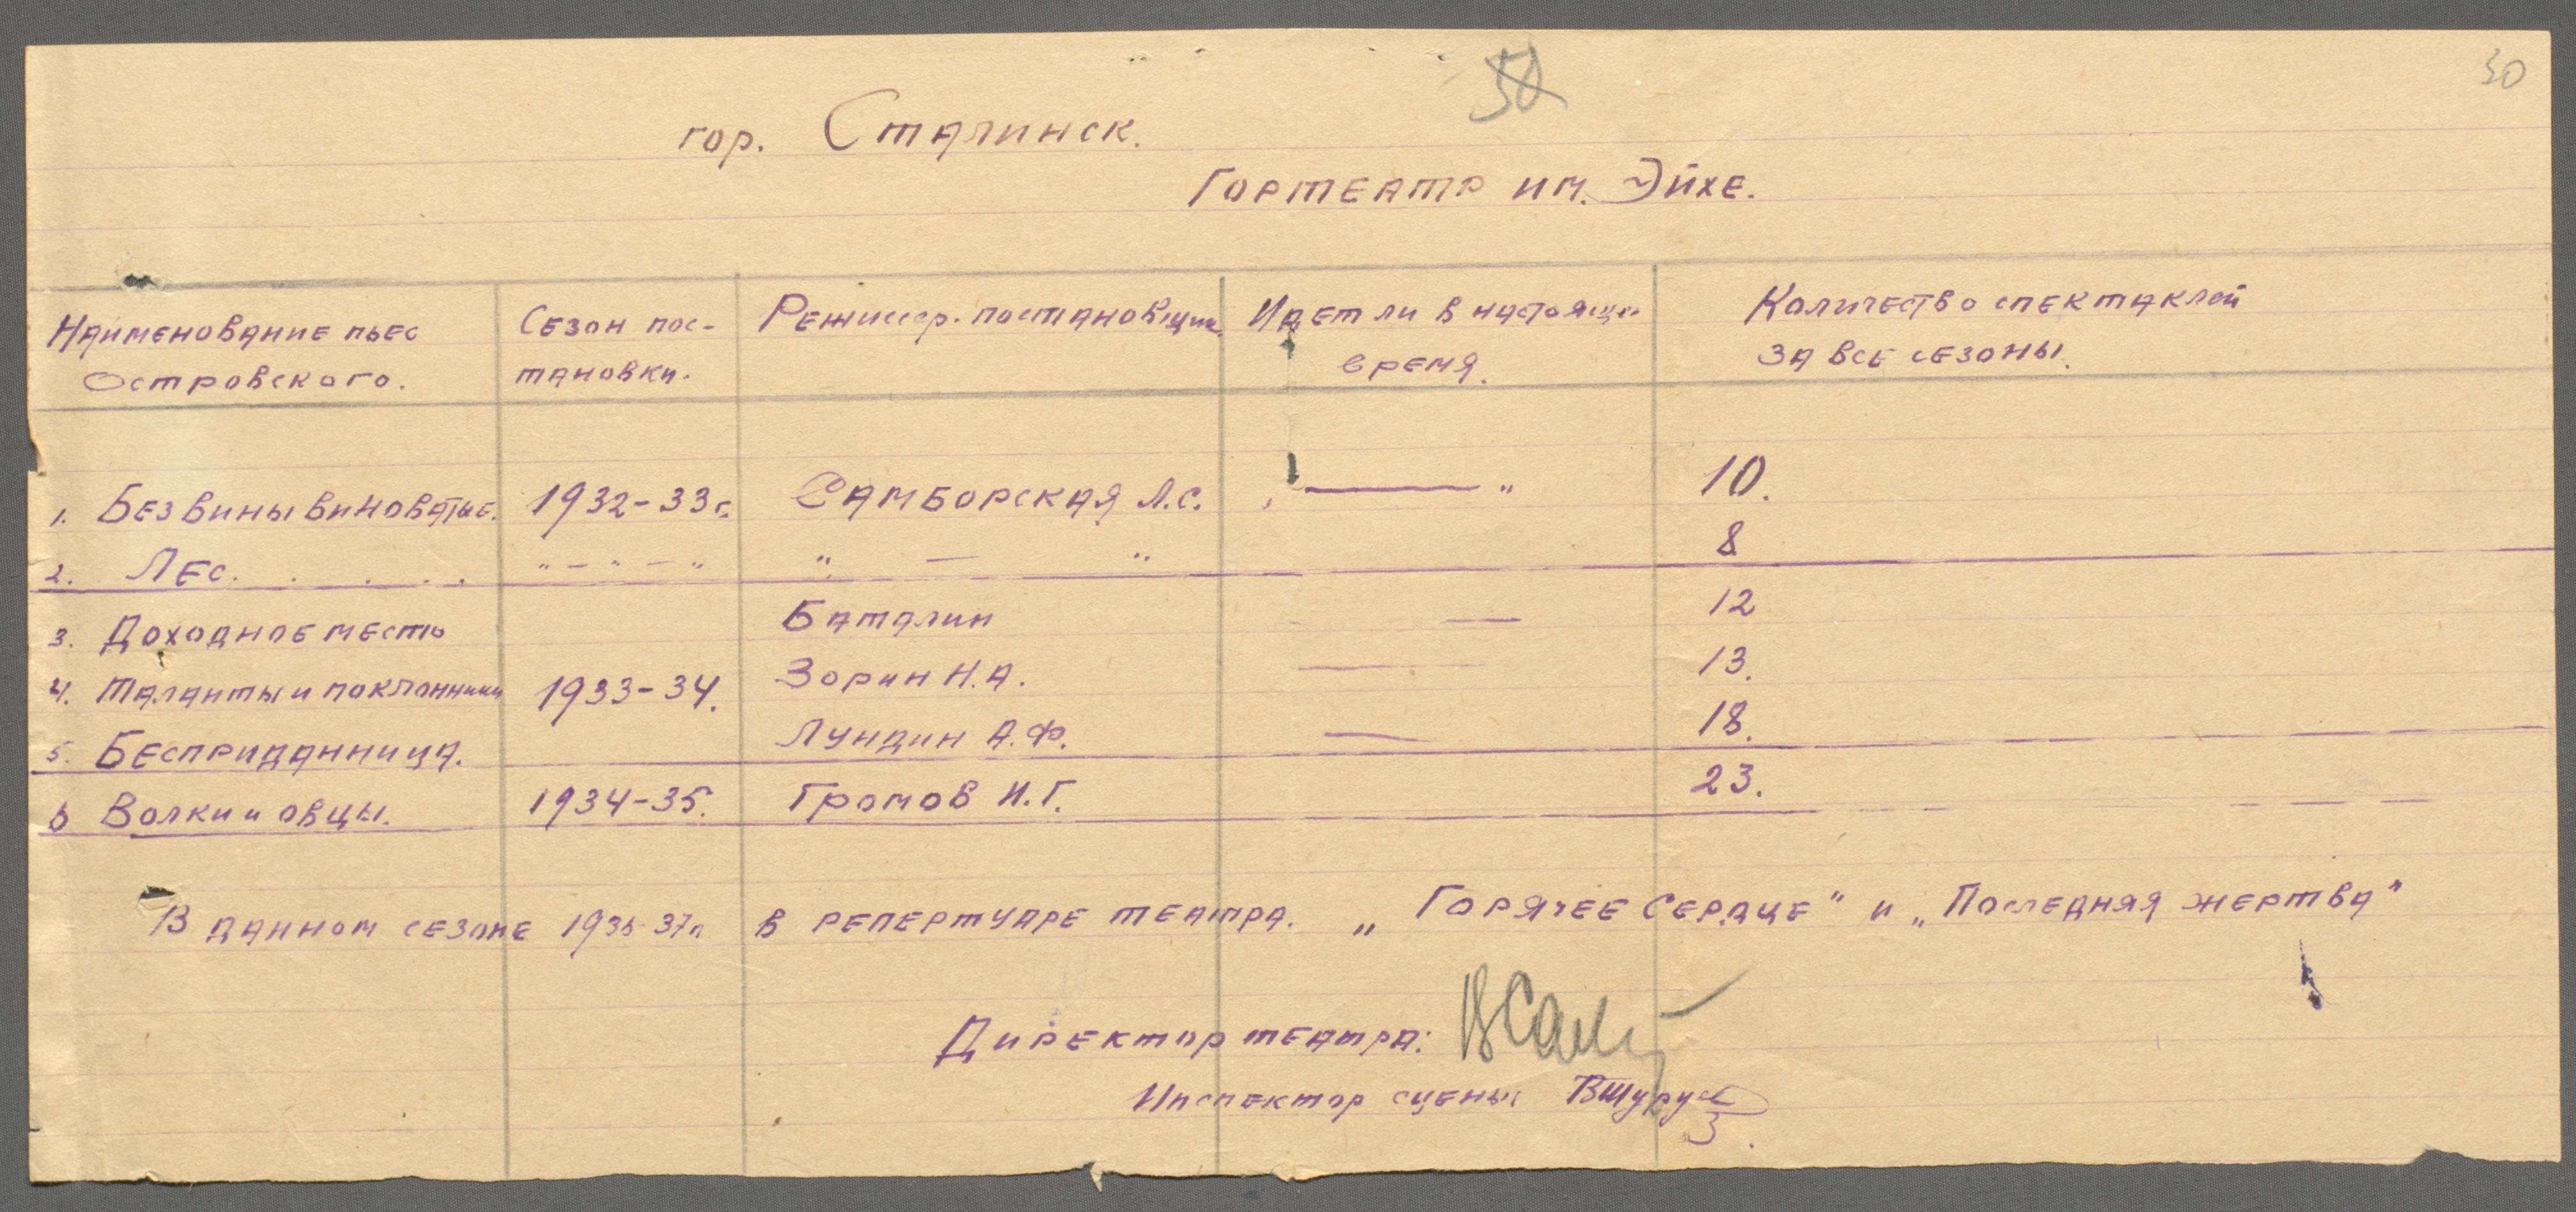 30
50
гор. Сталинск.
Гортеатр им. Эйхе.
Наименование пьес Островского. Сезон пос-тановки. Режиссер-постановщик Идет ли в настоящее время. Количество спектаклей за все сезоны.
1. Без вины виноватые. 1932-33г. Самборская Л.С. — " 10.
2. Лес. . . . . " - " - " " — " 8
3. Доходное место Баталин — 12
4. Таланты и поклонники 1933-34. Зорин Н.А. — 13.
5. Бесприданница. Лундин А.Ф. — 18.
6 Волки и овцы. 1934-35. Громов И.Г. 23.
В данном сезоне 1936-37г в репертуаре театра. „Горячее Сердце" и „Последняя жертва"
Директор театра:
Инспектор сцены